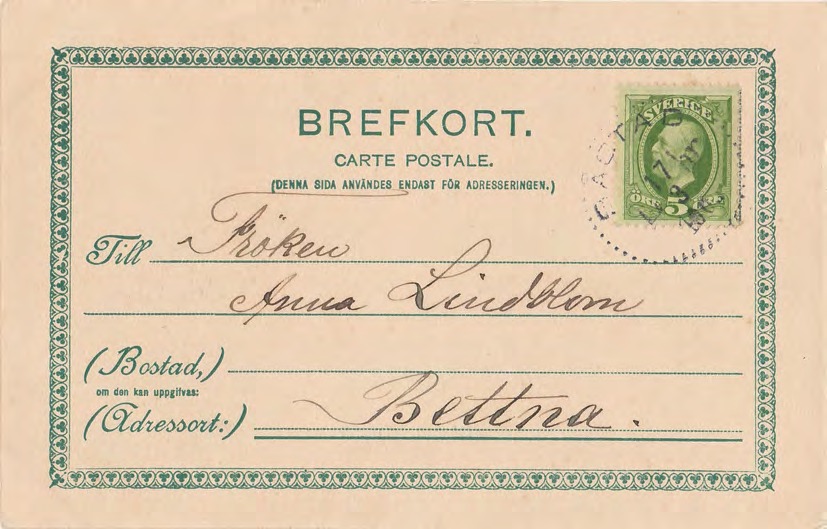 BREFKORT.
CARTE POSTALE.
(DENNA SIDA ANVÄNDES ENDAST FÖR ADRESSERINGEN.)
SVERIGE
ÖRE 5
Till Fröken
Anna Lindblom
(Bostad,)
om den kan uppgifvas:
(Adressort:) Bettna.